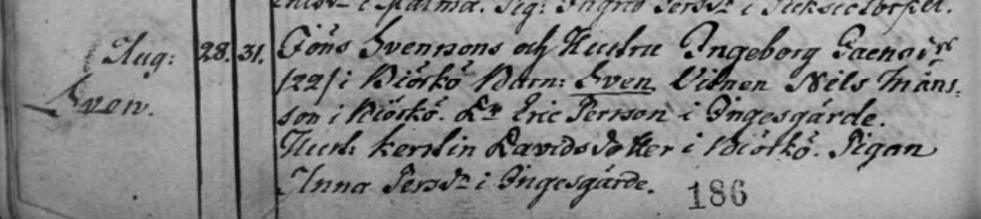 Pig: Ingrid Persdr i
Aug: 28. 31. Jöns Svenssons och Hustru Ingeborg
Sven. /22/ i Biörkö Barn: Sven. Vitnen Nils Måns-
son i Biörkö. Dr Eric Persson i Ingesgärde.
Hust: Kerstin Davidsdotter i Biörkö. Pigan
Anna Persdr i Ingesgärde.
186